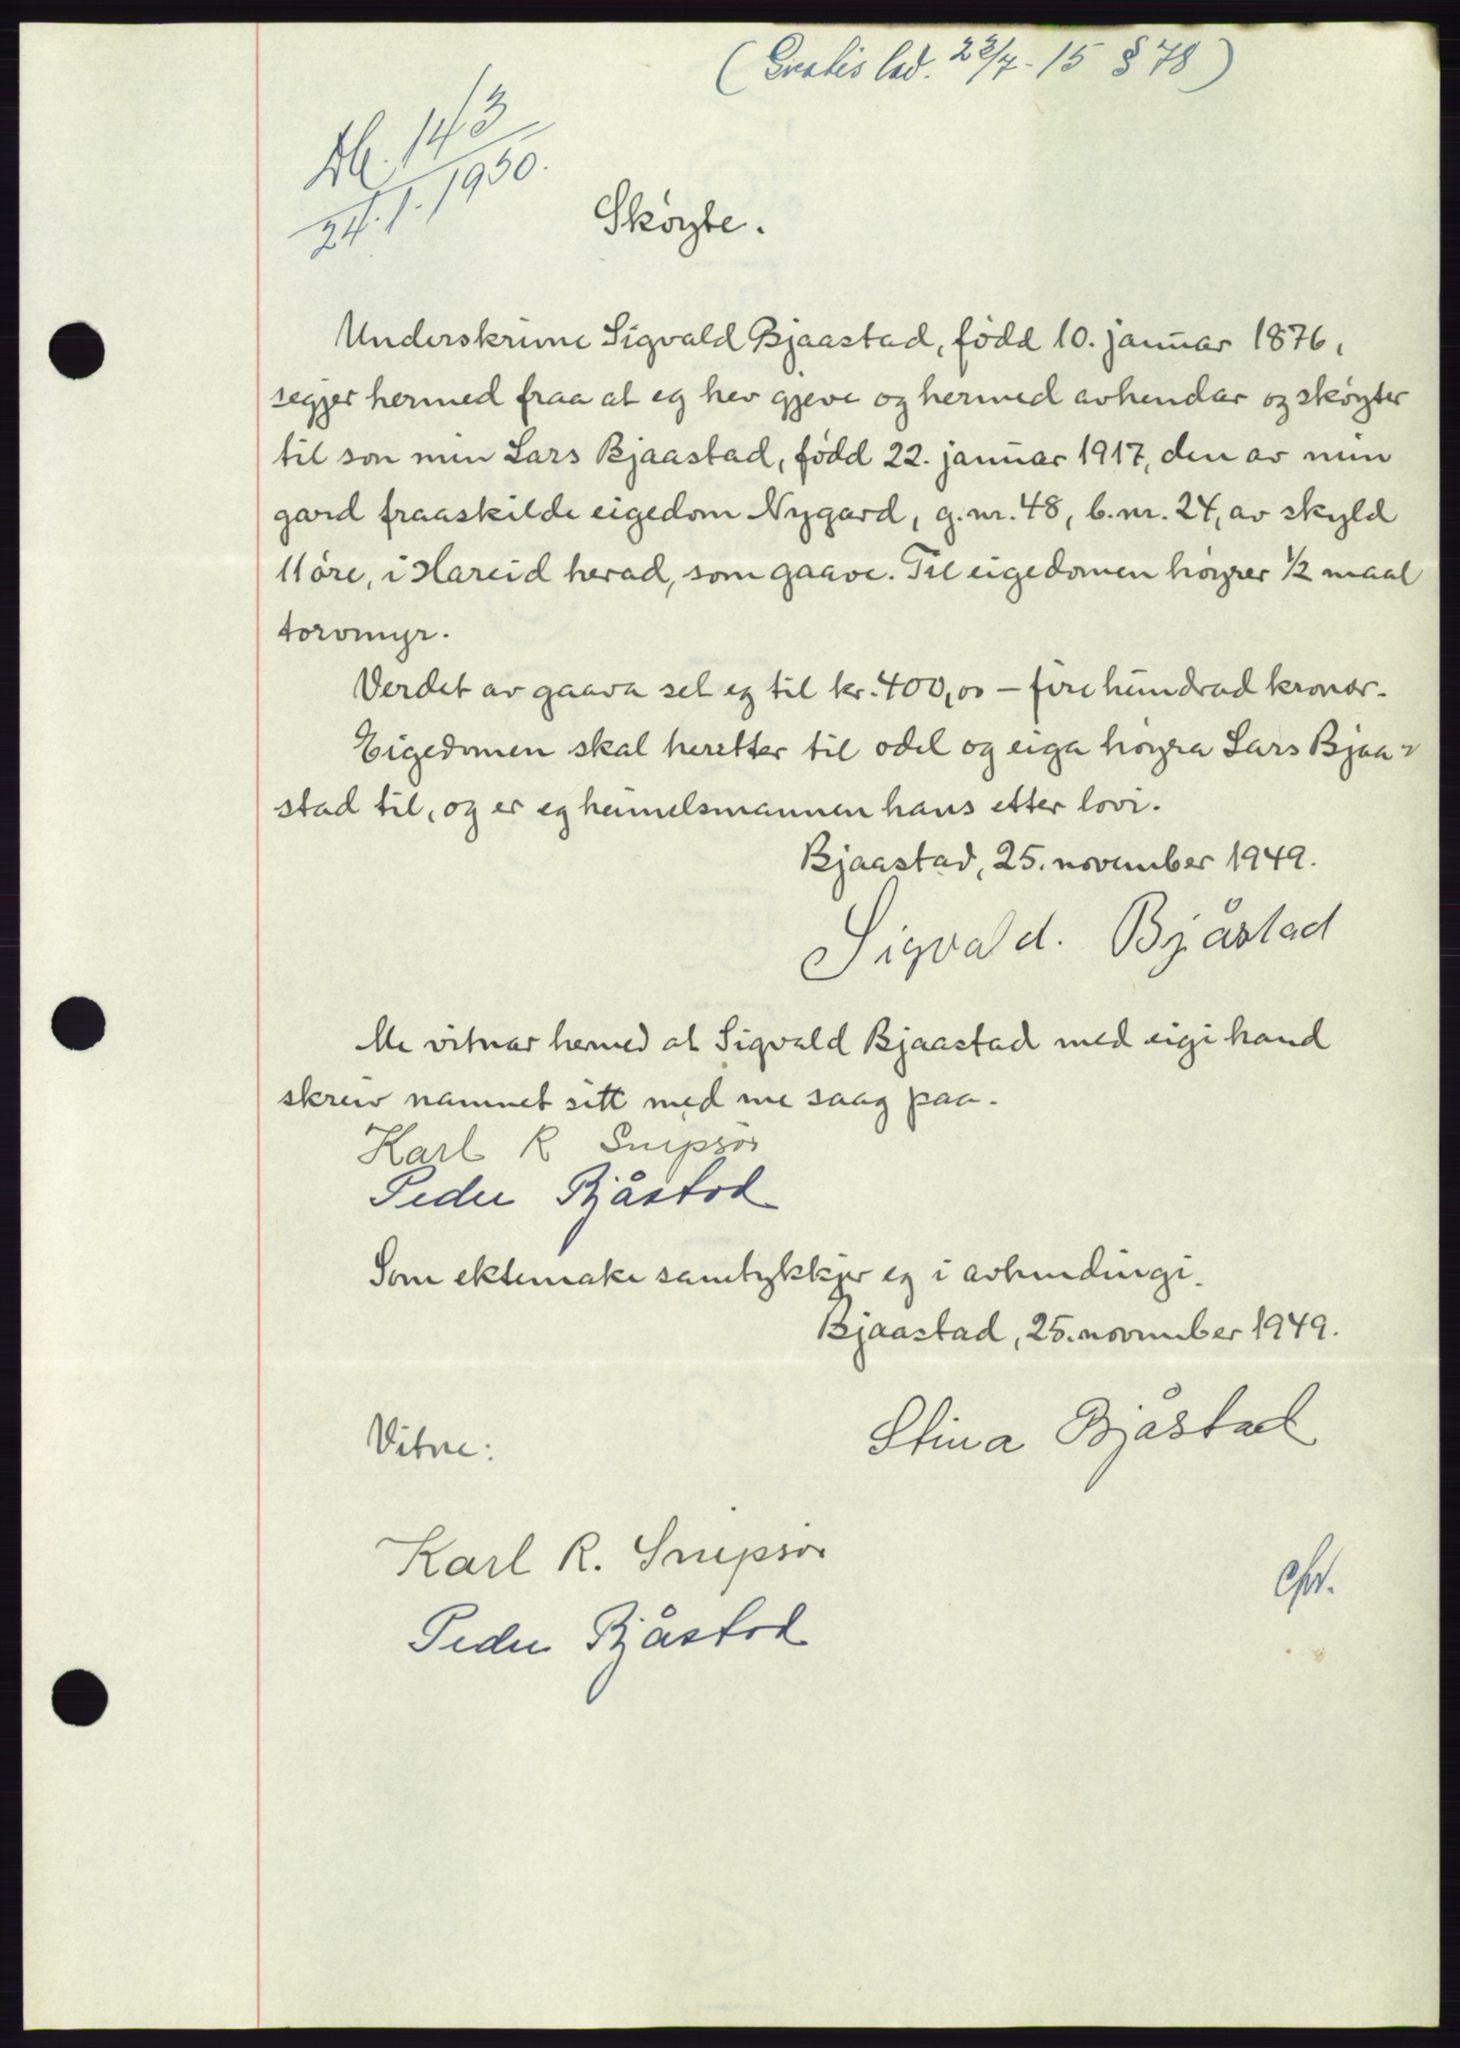 (Gratis lov. 23/7-15 § 78)
Db. 143
24.1.1950.
Skøyte.
Underskrivne Sigvald Bjaastad, född 10. januar 1876,
segjer hermed fraa at eg hev gjeve og hermed avhendar og skøyter
til son min Lars Bjaastad, född 22. januar 1917, den av min
gard fraaskilde eigedom Nygard, g.nr. 48, b.nr. 24, av skyld
11 öre, i Hareid herad, som gaave. Til eigedomen höyrer ½ maal
torvmyr.
Verdet av gaava set eg til kr. 400,00 – fire hundrad kronor.
Eigedomen skal heretter til odel og eiga höyra Lars Bjaa-
stad til, og er eg heimelsmannen hans etter lovi.
Bjaastad, 25. november 1949.
Sigvald. Bjåstad
Me vitnar hermed at Sigvald Bjaastad med eigi hand
skreiv namnet sitt med me saag paa.
Karl R Snipsör
Peder Bjåstad
Som ektemake samtykkjer eg i avhendingi.
Bjaastad, 25. november 1949.
Stina Bjåstad
Vitne:
Karl R. Snipsör
Peder Bjåstad